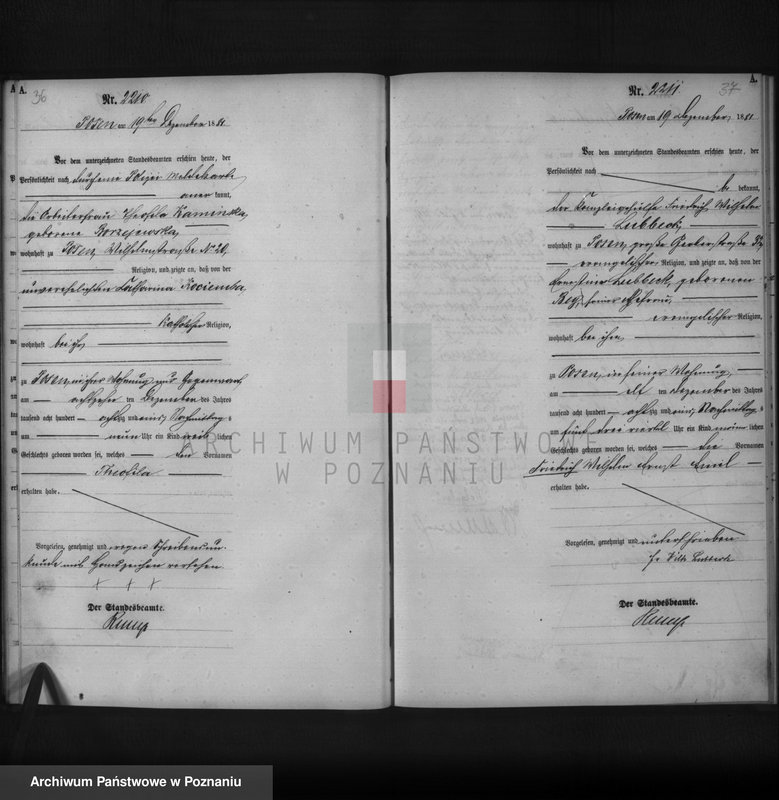 A.
36
Nr. 2210
Posen am 19ten Dezember 1881
Vor dem unterzeichneten Standesbeamten erschien heute, der
Persönlichkeit nach durch eine Polizei Meldekarte
anerkannt,
die Arbeiterfrau Theofila Kaminska,
geborene Borzejewska,
wohnhaft zu Posen, Wilhelmstraße No 20,
Religion, und zeigte an, daß von der
unverehelichten Katharina Kociemba,
Katholischer Religion,
wohnhaft bei ihr,
zu Posen, in ihrer Wohnung und Gegenwart
am achtzehnten Dezember des Jahres
tausend acht hundert achtzig und eins, Nachmittags
um neun Uhr ein Kind weiblichen
Geschlechts geboren worden sei, welches den Vornamen
Theofila
erhalten habe.
Vorgelesen, genehmigt und wegen Schreibensun-
kunde mit Handzeichen versehen.
+ + +
Der Standesbeamte.
A.
37
Nr. 2211
Posen am 19 Dezember 1881
Vor dem unterzeichneten Standesbeamten erschien heute, der
Persönlichkeit nach
bekannt,
der Kanzleigehülfe Friedrich Wilhelm
Lubbeck,
wohnhaft zu Posen, große Gerberstraße
evangelischer Religion, und zeigte an, daß von der
Ernestine Lubbeck, geborenen
seiner Ehefrau,
evangelischer Religion,
wohnhaft bei ihm
zu Posen, in seiner Wohnung,
am elften Dezember des Jahres
tausend acht hundert achtzig und eins, Nachmittag
um fünf drei viertel Uhr ein Kind männlichen
Geschlechts geboren worden sei, welches die Vornamen
Friedrich Wilhelm Ernst Emil
erhalten habe.
Vorgelesen, genehmigt und unterschrieben
Fr Wilh Lubbeck
Der Standesbeamte.
ARCHIWUM PAŃSTWOWE
W POZNANIU
Archiwum Państwowe w Poznaniu